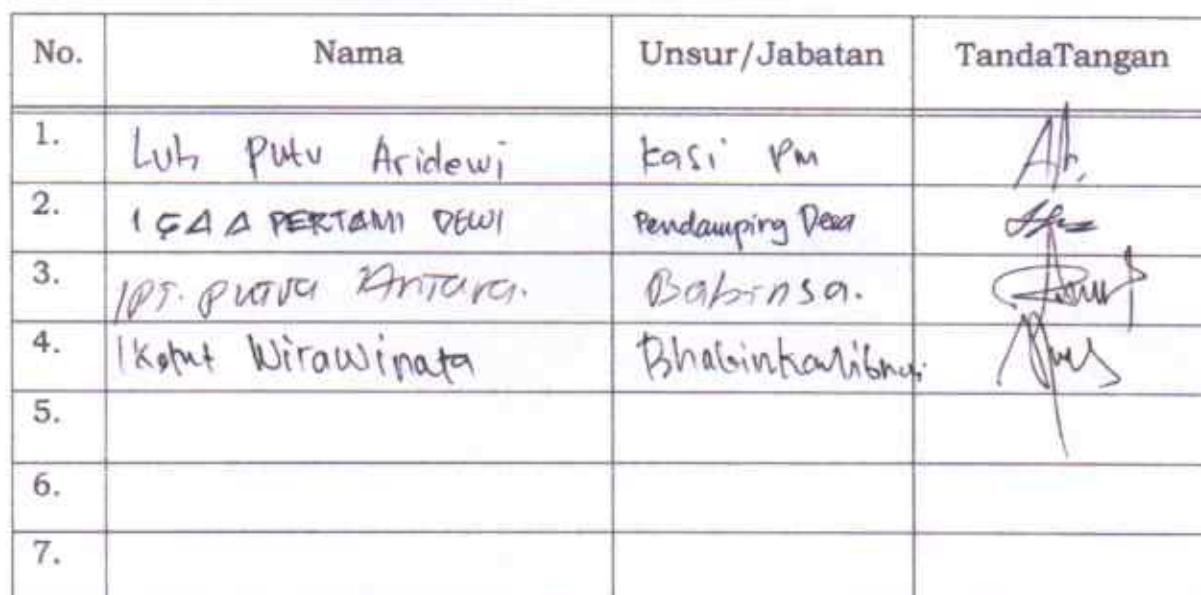 No. Nama Unsur/Jabatan TandaTangan
1. Luh Putu Aridewi Kasi PM
2. I GAA PERTAMI DEWI Pendamping Desa
3. IPT. PUTRA ANTARA. Babinsa.
4. I Ketut Wirawinata
5.
6.
7.